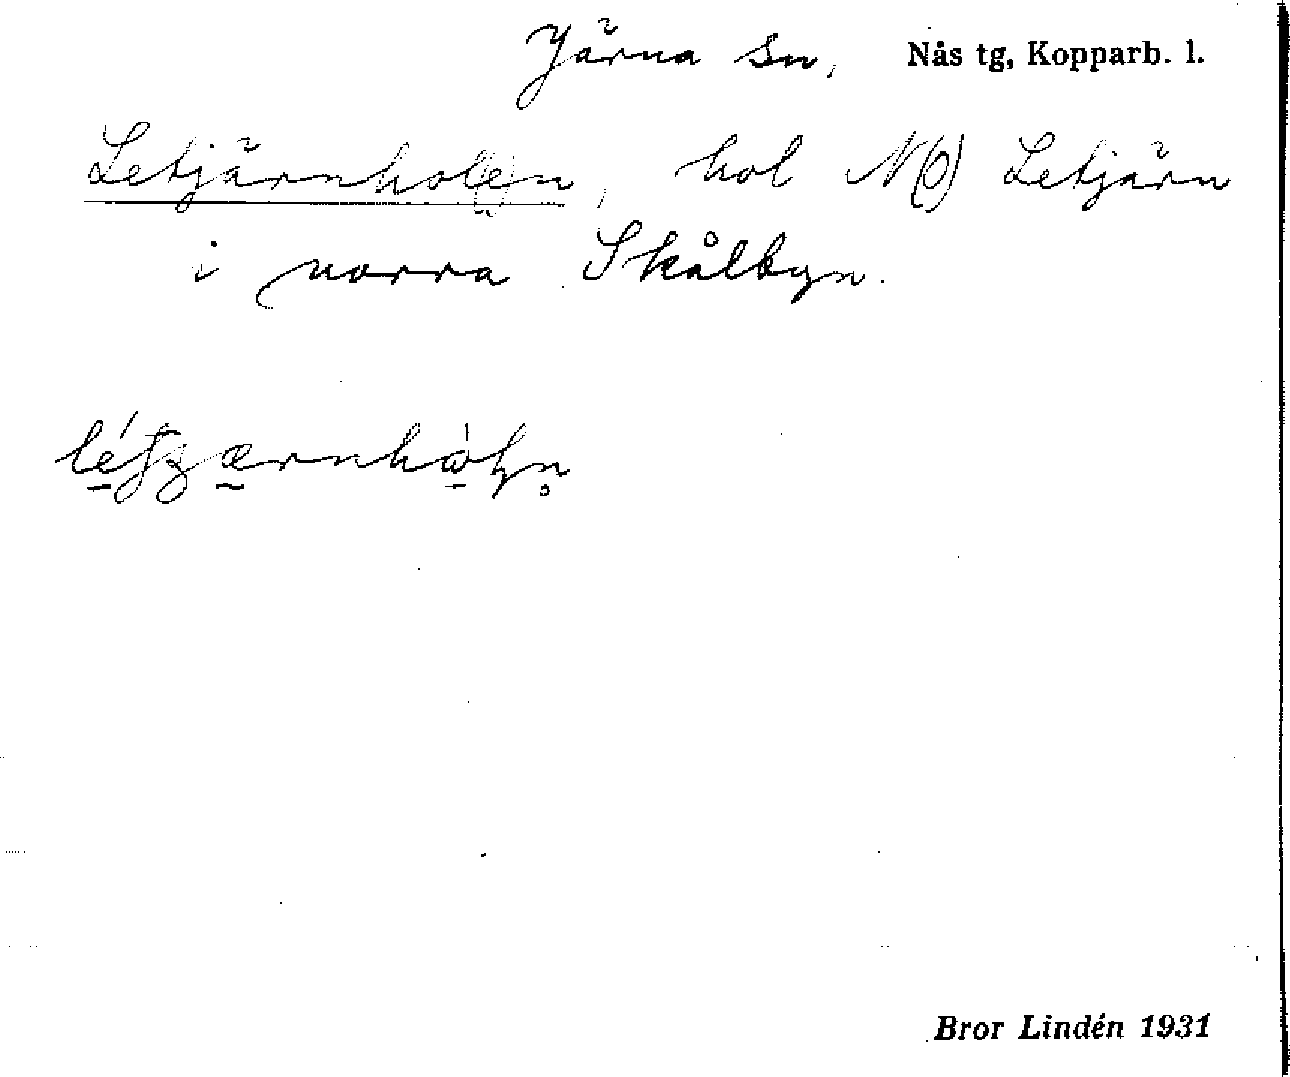 Järna sn, Nås tg, Kopparb. l.
Letjärnhol(e)n, hol N(O) Letjärn
i norra Skålbyn.
Bror Lindén 1931